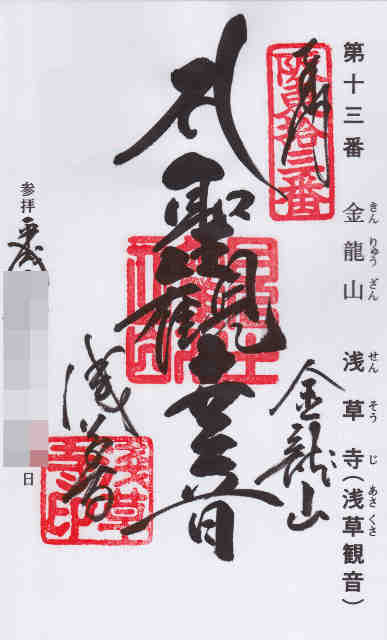 第十三番 金龍山 浅草寺(浅草観音)
きん りゅう ざん せん そう じ あさ くさ
奉拝
坂東拾三番
聖観世音
金龍山
浅草寺
浅草寺印
参拝 平成
日